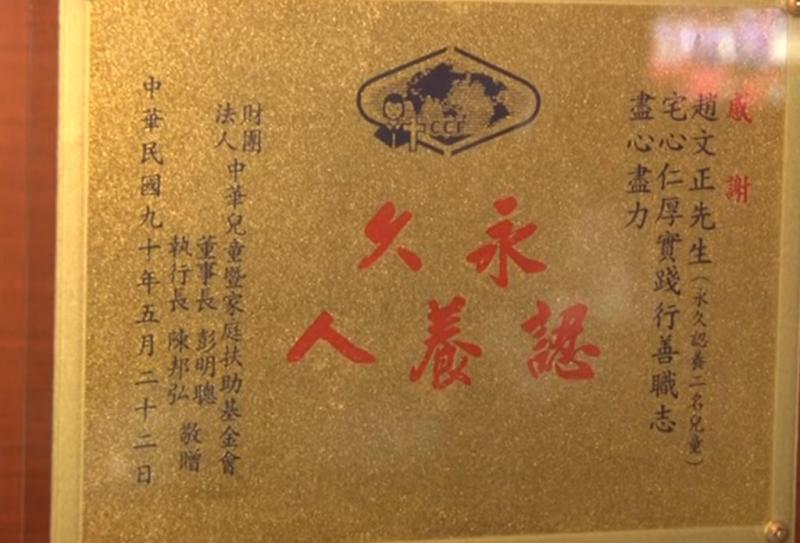 感謝
趙文正先生(永久認養二名兒童)
宅心仁厚實踐行善職志
盡心盡力
CCF
永久
認養人
財團法人中華兒童暨家庭扶助基金會
董事長 彭明聰
執行長 陳邦弘 敬贈
中華民國九十年五月二十二日